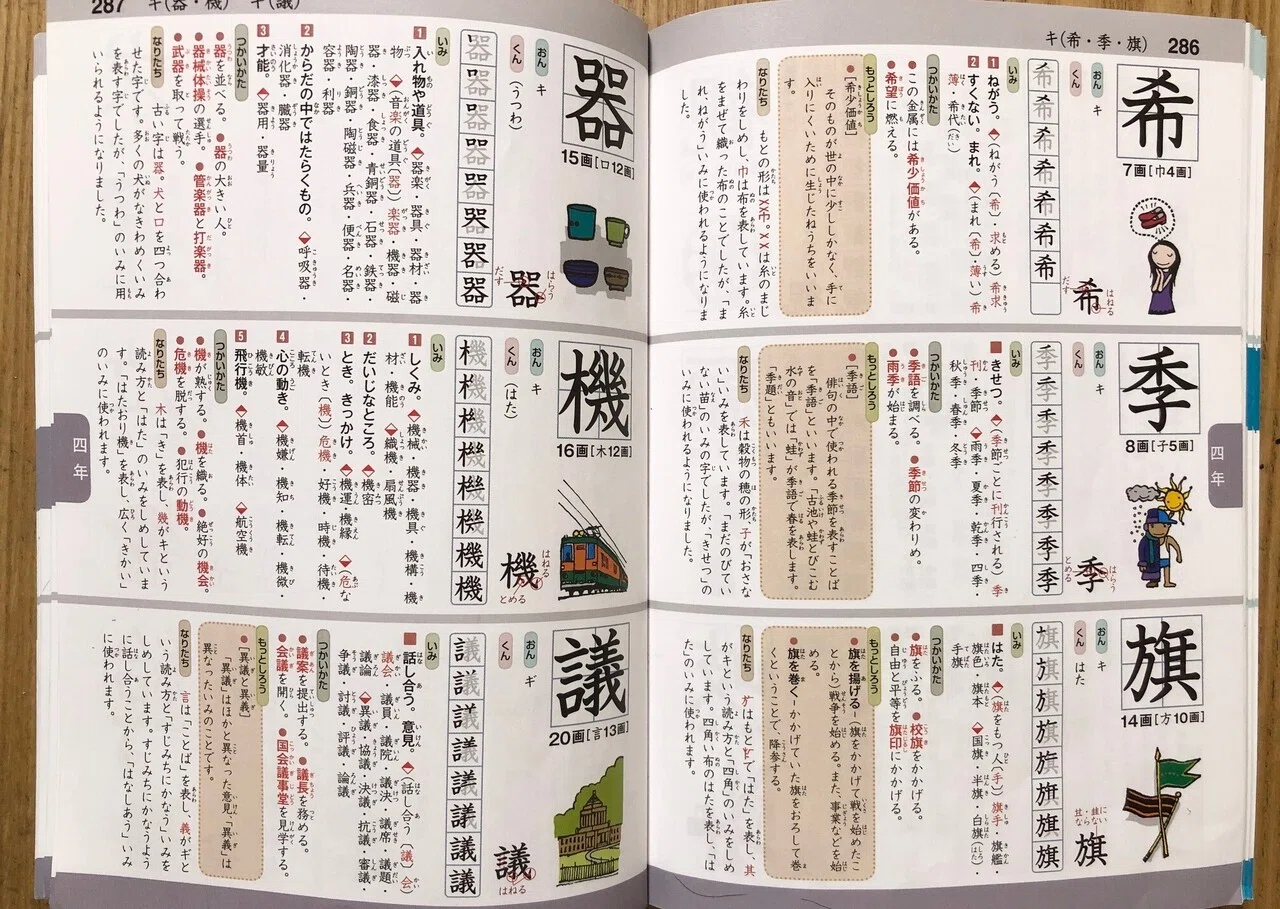 キ(希・季・旗) 286
希
7画[巾4画]
おん キ
くん
希 希 希 希 希 希 希
希
はねる
だす
いみ
1 ねがう。◆(ねがう〔希〕・求める)希求
2 すくない。まれ。◆(まれ〔希〕・薄い)希
薄・希代(だい)
つかいかた
●この金属には希少価値がある。
●希望に燃える。
もっとしろう
●[希少価値]
そのものが世の中に少ししかなく、手に
入りにくいために生じたねうちをいいま
す。
なりたち
わりをしめし、巾は布を表しています。糸
をまぜて織った布のことでしたが、「ま
れ、ねがう」いみに使われるようになりま
した。
四年
季
8画[子5画]
おん キ
くん
季 季 季 季 季 季 季 季
季
はらう
とめる
いみ
■ きせつ。◆(季節ごとに刊行される)季
刊・季節 ◆雨季・夏季・乾季・四季・
秋季・春季・冬季
つかいかた
●季語を調べる。 ●季節の変わりめ。
●雨季が始まる。
もっとしろう
●[季語]
俳句の中で使われる季節を表すことば
を「季語」といいます。「古池や蛙とびこむ
水の音」では「蛙」が季語で春を表します。
「季題」ともいいます。
なりたち
禾は穀物の穂の形、子が「おさな
い」いみを表しています。「まだのびてい
ない苗」のいみの字でしたが、「きせつ」の
いみに使われるようになりました。
旗
14画[方10画]
おん キ
くん はた
旗 旗 旗 旗 旗 旗 旗
旗
いみ
■ はた。◆(旗をもつ人〔手〕)旗手・旗艦・
旗色・旗本 ◆国旗・半旗・白旗(はた)・
手旗
つかいかた
●旗をふる。 ●校旗をかかげる。
●自由と平等を旗印にかかげる。
もっとしろう
●旗を揚げる―旗をかかげて戦を始めたこ
とから)戦争を始める。また、事業などを始
める。
●旗を巻く―かかげていた旗をおろして巻
くということで、降参する。
なりたち
がキという読み方と「四角」のいみをしめ
しています。四角い布のはたを表し、「は
た」のいみに使われます。
287 キ(器・機) ギ(議)
器
15画[口12画]
おん キ
くん (うつわ)
器 器 器 器 器 器 器 器
器
はらう
だす
いみ
1 入れ物や道具。◆器楽・器具・器材・器
物 ◆(音楽の道具〔器〕)楽器・機器・磁
器・漆器・食器・青銅器・石器・鉄器・
陶器・銅器・陶磁器・兵器・便器・名器・
容器・利器
2 からだの中ではたらくもの。◆呼吸器・
消化器・臓器
3 才能。◆器用・器量
つかいかた
●器を並べる。 ●器の大きい人。
●器械体操の選手。 ●管楽器と打楽器。
●武器を取って戦う。
なりたち
古い字は器。犬と口を四つ合わ
せた字です。多くの犬がなきわめくいみ
を表す字でしたが、「うつわ」のいみに用
いられるようになりました。
四年
機
16画[木12画]
おん キ
くん (はた)
機 機 機 機 機 機 機
機
はねる
とめる
いみ
1 しくみ。◆機械・機器・機具・機構・機
材・機能 ◆織機・扇風機
2 だいじなところ。◆機密
3 とき。きっかけ。◆機運・機縁 ◆(危な
いとき〔機〕)危機・好機・時機・待機・
転機
4 心の動き。◆機嫌・機知・機転・機微・
機敏
5 飛行機。◆機首・機体 ◆航空機
つかいかた
●機が熟する。 ●機を織る。 ●絶好の機会。
●危機を脱する。 ●犯行の動機。
なりたち
木は「き」を表し、幾がキという
読み方と「はた」のいみをしめしていま
す。「はたおり機」を表し、広く「きかい」
のいみに使われます。
議
20画[言13画]
おん ギ
くん
議 議 議 議 議 議 議
議
はねる
いみ
■ 話し合う。意見。◆(話し合う〔議〕会)
議会・議員・議院・議決・議席・議題・
議論 ◆異議・協議・決議・抗議・審議・
争議・討議・評議・論議
つかいかた
●議案を提出する。 ●議長を務める。
●会議を開く。 ●国会議事堂を見学する。
もっとしろう
●[異議と異義]
「異議」はほかと異なった意見、「異義」は
異なったいみのことです。
なりたち
言は「ことば」を表し、義がギと
いう読み方と「すじみちにかなう」いみを
しめしています。すじみちにかなうよう
に話し合うことから、「はなしあう」いみ
に使われます。